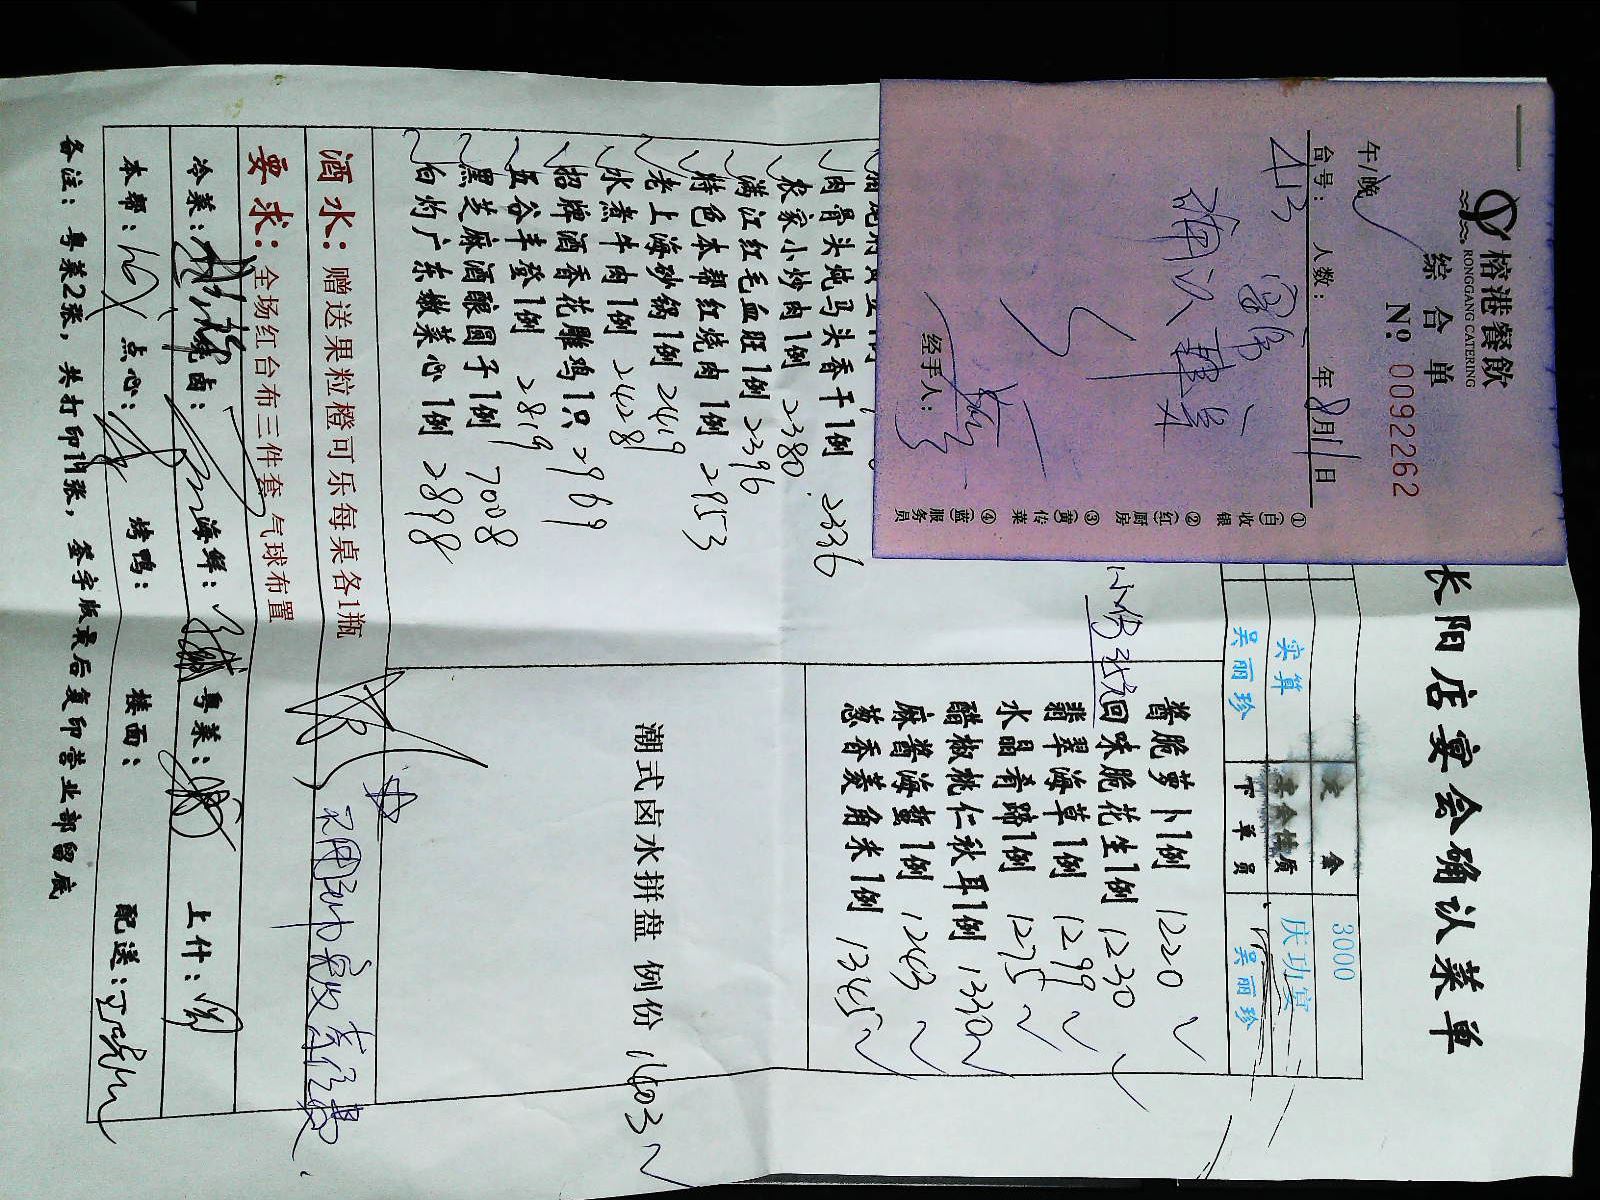 榕港餐飲
RONGGANG CATERING
综合单
№ 0092262
午/晚
台号: 人数: 年8月11日
413
确认菜单
经手人:
①(白)收银 ②(红)厨房 ③(黄)传菜 ④(蓝)服务员
长阳店宴会确认菜单
3000
实算 庆功宴
吴丽珍 下单员 吴丽珍
酱脆萝卜1例 1220
回味脆花生1例 1230
翡翠海草1例 1299
水晶肴蹄1例 1275
醋椒桃仁秋耳1例 1330
麻酱海蜇1例 1243
葱香菱角米1例 1345
潮式卤水拼盘 例份 1603
肉骨头炖马头香干1例 2336
农家小炒肉1例 2380
满江红毛血旺1例 2396
特色本帮红烧肉1例 2953
老上海砂锅1例 2419
水煮牛肉1例 2428
招牌酒香花雕鸡1只 2969
五谷丰登1例 2819
黑芝麻酒酿圆子1例 7008
白灼广东嫩菜心1例 2898
酒水: 赠送果粒橙可乐每桌各1瓶
要求: 全场红台布三件套 气球布置
冷菜: 烧卤: 海鲜: 粤菜: 上什:
本帮: 点心: 烤鸭: 楼面: 配送:
备注: 粤菜2张, 共打印11张, 签字版最后复印营业部留底